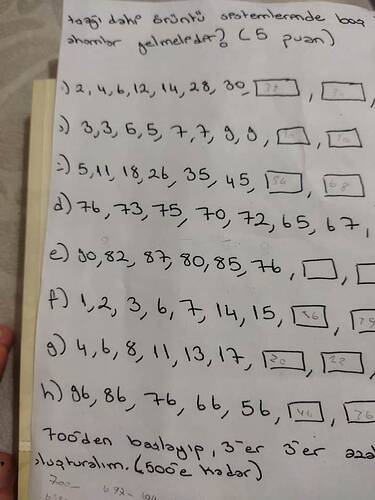 dahi örüntü sistemlerinde boş
gelmelidir? (5 puan)
) 2, 4, 6, 12, 14, 28, 30, ,
) 3, 3, 5, 5, 7, 7, 9, 9, ,
) 5, 11, 18, 26, 35, 45, 56, 68
d) 76, 73, 75, 70, 72, 65, 67,
e) 90, 82, 87, 80, 85, 76, ,
f) 1, 2, 3, 6, 7, 14, 15, ,
g) 4, 6, 8, 11, 13, 17, 20, 22
h) 96, 86, 76, 66, 56, 46,
700'den başlayıp, 3'er 3'er
oluşturalım. (500'e kadar)
700